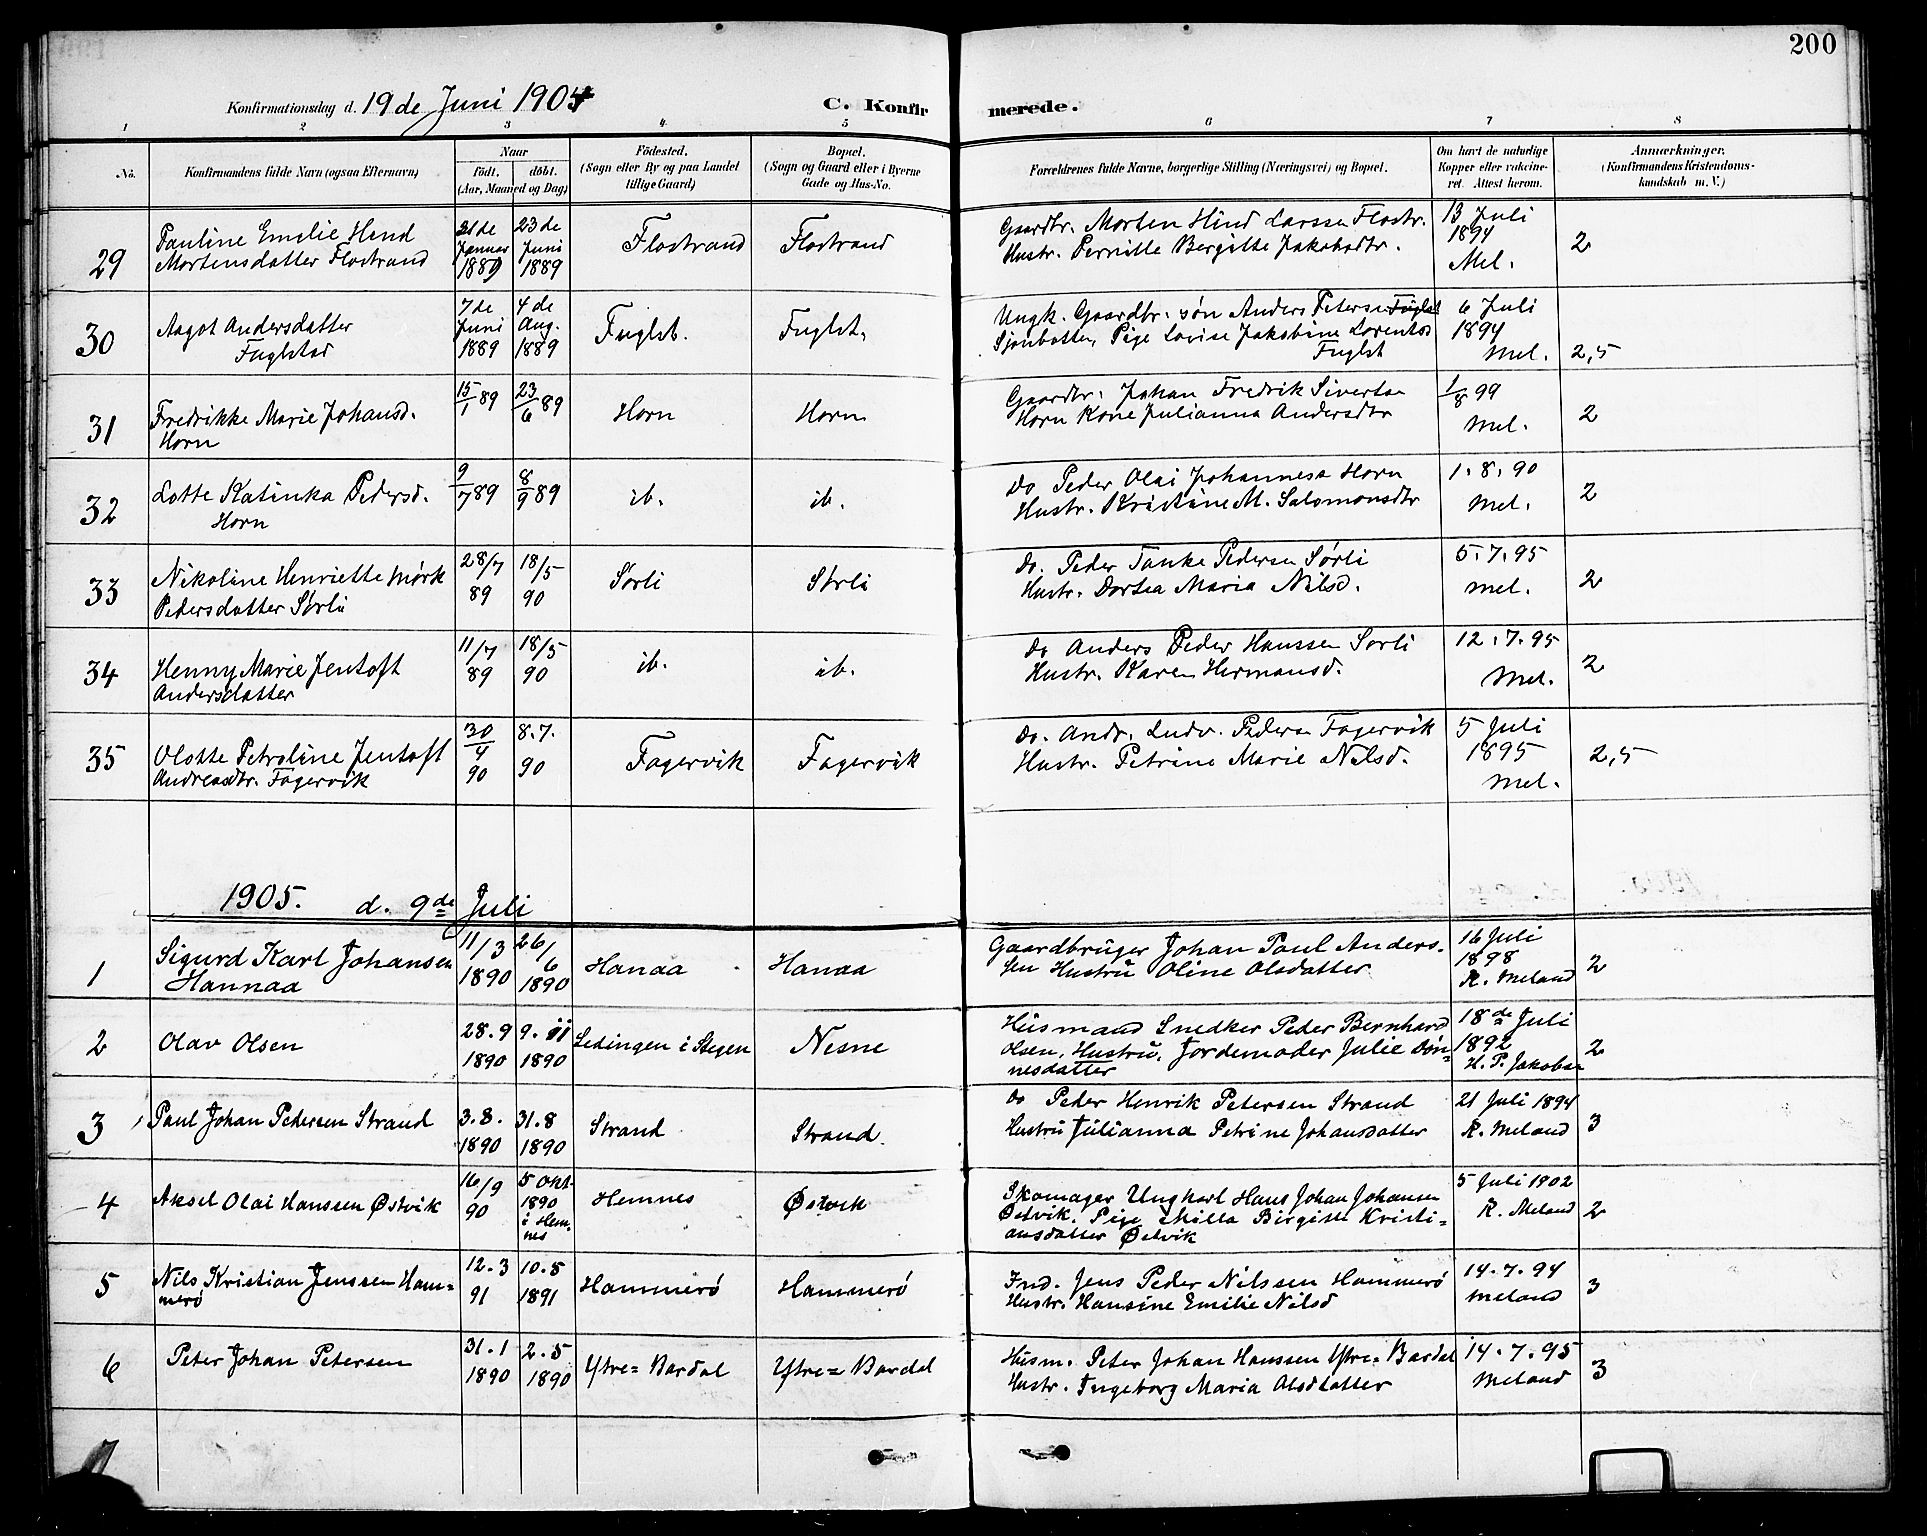 200
Konfirmationsdag d. 19 de Juni 1904
C. Konfir merede.
1 2 3 4 5 6 7 8
No.
Konfirmandens fulde Navn (ogsaa Efternavn)
Naar
födt. döbt.
(Aar, Maaned og Dag)
Födested.
(Sogn eller By og paa Landet
tillige Gaard)
Bopæl.
(Sogn og Gaard eller i Byerne
Gade og Hus-No.
Forældrenes fulde Navne, borgerlige Stilling (Næringsvei) og Bopæl.
Om havt de naturlige
Kopper eller vakcine-
ret. Attest herom.
Anmærkninger.
(Konfirmandens Kristendoms-
kundskab m. V.)
29
Pauline Emelie Hind
Mortensdatter Flostrand
21 de
Januar
1889
23 de
Juni
1889
Flostrand
Flostrand
Gaardbr. Morten Hind Larssen Flostr.
Hustr. Pernille Bergitte Jakobsdtr.
13 Juli
1894
Mel.
2
30
Aagot Andersdatter
Fuglstad
7 de
Juni
1889
4 de
Aug.
1889
Fuglst.
Fuglst.
Ungk. Gaardbr. søn Anders Peterse Fuglst
Sjonbotten, Pige Lovise Jakobine Lorentsd
Fuglst
6 Juli
1894
Mel.
2,5
31
Fredrikke Marie Johansd.
Horn
15/1 89
23/6 89
Horn
Horn
Gaardbr. Johan Fredrik Sivertse
Horn Kone Julianna Andersdtr
1/8 99
Mel.
2
32
Lotte Katinka Pedersd.
Horn
9/7 89
8/9 89
ib.
ib.
do Peder Olai Johannesse Horn
Hustr. Kristine M. Salomonsdtr
1. 8. 90
Mel.
2
33
Nikoline Henriette Mørk
Pedersdatter Sørli
28/7
89
18/5
90
Sørli
Sørli
do. Peder Tanke Pedersen Sørli
Hustr. Dortea Maria Nilsd.
5. 7. 95
Mel.
2
34
Henny Marie Jentoft
Andersdatter
11/7
89
18/5
90
ib.
ib.
do Anders Peder Hanssen Sørli
Hustr. Karen Hermansd.
12. 7. 95
Mel.
2
35
Olotte Petroline Jentoft
Andreasdtr. Fagervik
30/4
90
8. 7.
90
Fagervik
Fagervik
do. Andr. Ludv. Pederse Fagervik
Hustr. Petrine Marie Nilsd.
5 Juli
1895
Mel.
2,5
1905. d. 9de Juli
1
Sigurd Karl Johansen
Hannaa
11/3
1890
26/6
1890
Hanaa
Hanaa
Gaardbruger Johan Paul Anders-
sen Hustru Oline Olsdatter
16 Juli
1898
R. Meland
2
2
Olav Olsen
28. 9
1890
9. 11
1890
Lødingen i Stegen
Nesne
Husmand Snedker Peder Bernhard
Olsen, Hustru, Jordemoder Julie Døn=
nesdatter
18de Juli
1892
H. P. Jakobse
2
3
Paul Johan Pedersen Strand
3. 8.
1890
31. 8
1890
Strand
Strand.
do Peder Henrik Petersen Strand
Hustru Julianna Petrine Johansdatter
21 Juli 1894
R. Meland
3
4
Aksel Olai Hanssen Østvik
16/9
90
5 Okt
1890
i Hem-
nes
Hemnes
Østvik
Skomager Ungkarl Hans Johan Johansen
Østvik. Pige Milla Birgitte Kristi=
ansdatter Østvik
5 Juli 1902
R. Meland
2
5
Nils Kristian Jenssen Ham=
merø
12. 3
91
10. 5
1891
Hammerø
Hammerø
Ind. Jens Peder Nilssen Hammerø
Hustr. Hansine Emilie Nilsd
14. 7. 94
Meland
3
6
Peter Johan Petersen
31. 1
1890
2. 5
1890
Ytre= Bardal
Ytre= Bardal
Husm. Peter Johan Hanssen Ytre= Bardal
Hustr. Ingeborg Maria Olsdatter
14. 7. 95
Meland
3
7